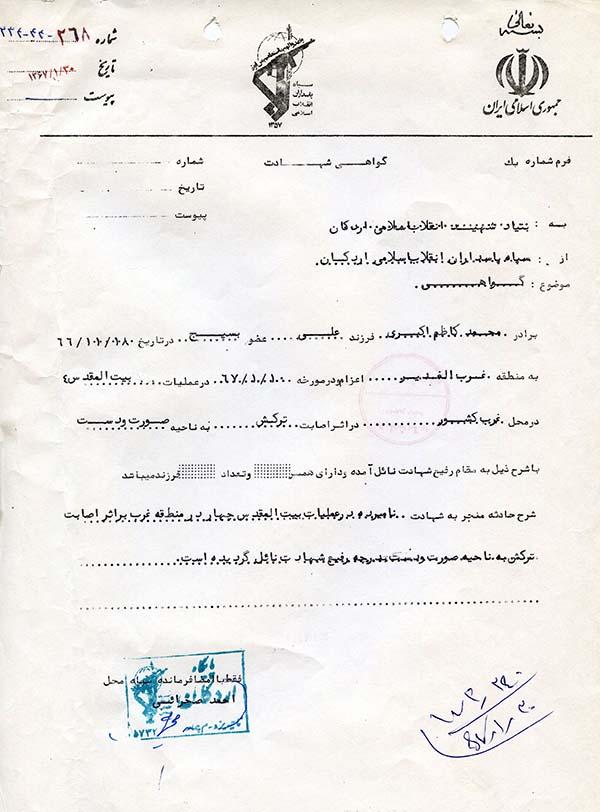 بسمه تعالی
جمهوری اسلامی ایران
سپاه
پاسداران
انقلاب
اسلامی
۱۳۵۷
شماره ۲۶۸-۲۴-۲۳۴
تاریخ ۱۳۶۷/۱/۳۰
پیوست
فرم شماره یک
گواهی شهادت
شماره
تاریخ
پیوست
به : بنیاد شهید انقلاب اسلامی اردکان
از : سپاه پاسداران انقلاب اسلامی اردکان
موضوع : گواهی
برادر محمد کاظم اکبری فرزند علی عضو بسیج در تاریخ ۶۶/۱۰/۰۸
به منطقه غرب الغدیر اعزام و در مورخه ۶۷/۰۱/۱۰ در عملیات بیت المقدس ۴
در محل غرب کشور در اثر اصابت ترکش به ناحیه صورت و دست
با شرح ذیل به مقام رفیع شهادت نائل آمده و دارای همسر و تعداد فرزند میباشد
شرح حادثه منجر به شهادت نامبرده در عملیات بیت المقدس چهار در منطقه غرب بر اثر اصابت
ترکش به ناحیه صورت و دست بدرجه رفیع شهادت نائل گردیده است
فقط با امضا فرمانده سپاه محل
احمد صحرائی
پایگاه
اردکان
۵۷۳۲